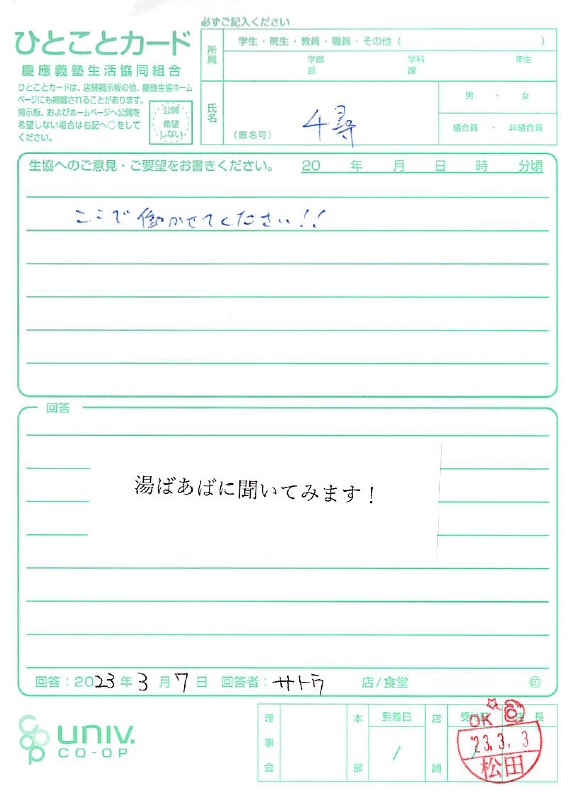 必ずご記入ください
ひとことカード
慶應義塾生活協同組合
ひとことカードは、店舗掲示板の他、慶應生協ホーム
ページにも掲載されることがあります。
掲示板、およびホームページへ公開を
希望しない場合は右記へ○をして
ください。
公開
希望
しない
所属
学生・院生・教員・職員・その他（ ）
学部 学科 年生
部 課
氏名
（匿名可）
4尋
男・女
組合員・非組合員
生協へのご意見・ご要望をお書きください。 20 年 月 日 時 分頃
ここで働かせてください!!
回答
湯ばあばに聞いてみます！
回答：2023年3月7日 回答者：サトウ 店/食堂 ㊞
univ.
CO-OP
理事会
本部
到着日
/
店舗
店長
OK
'23.3.3
松田